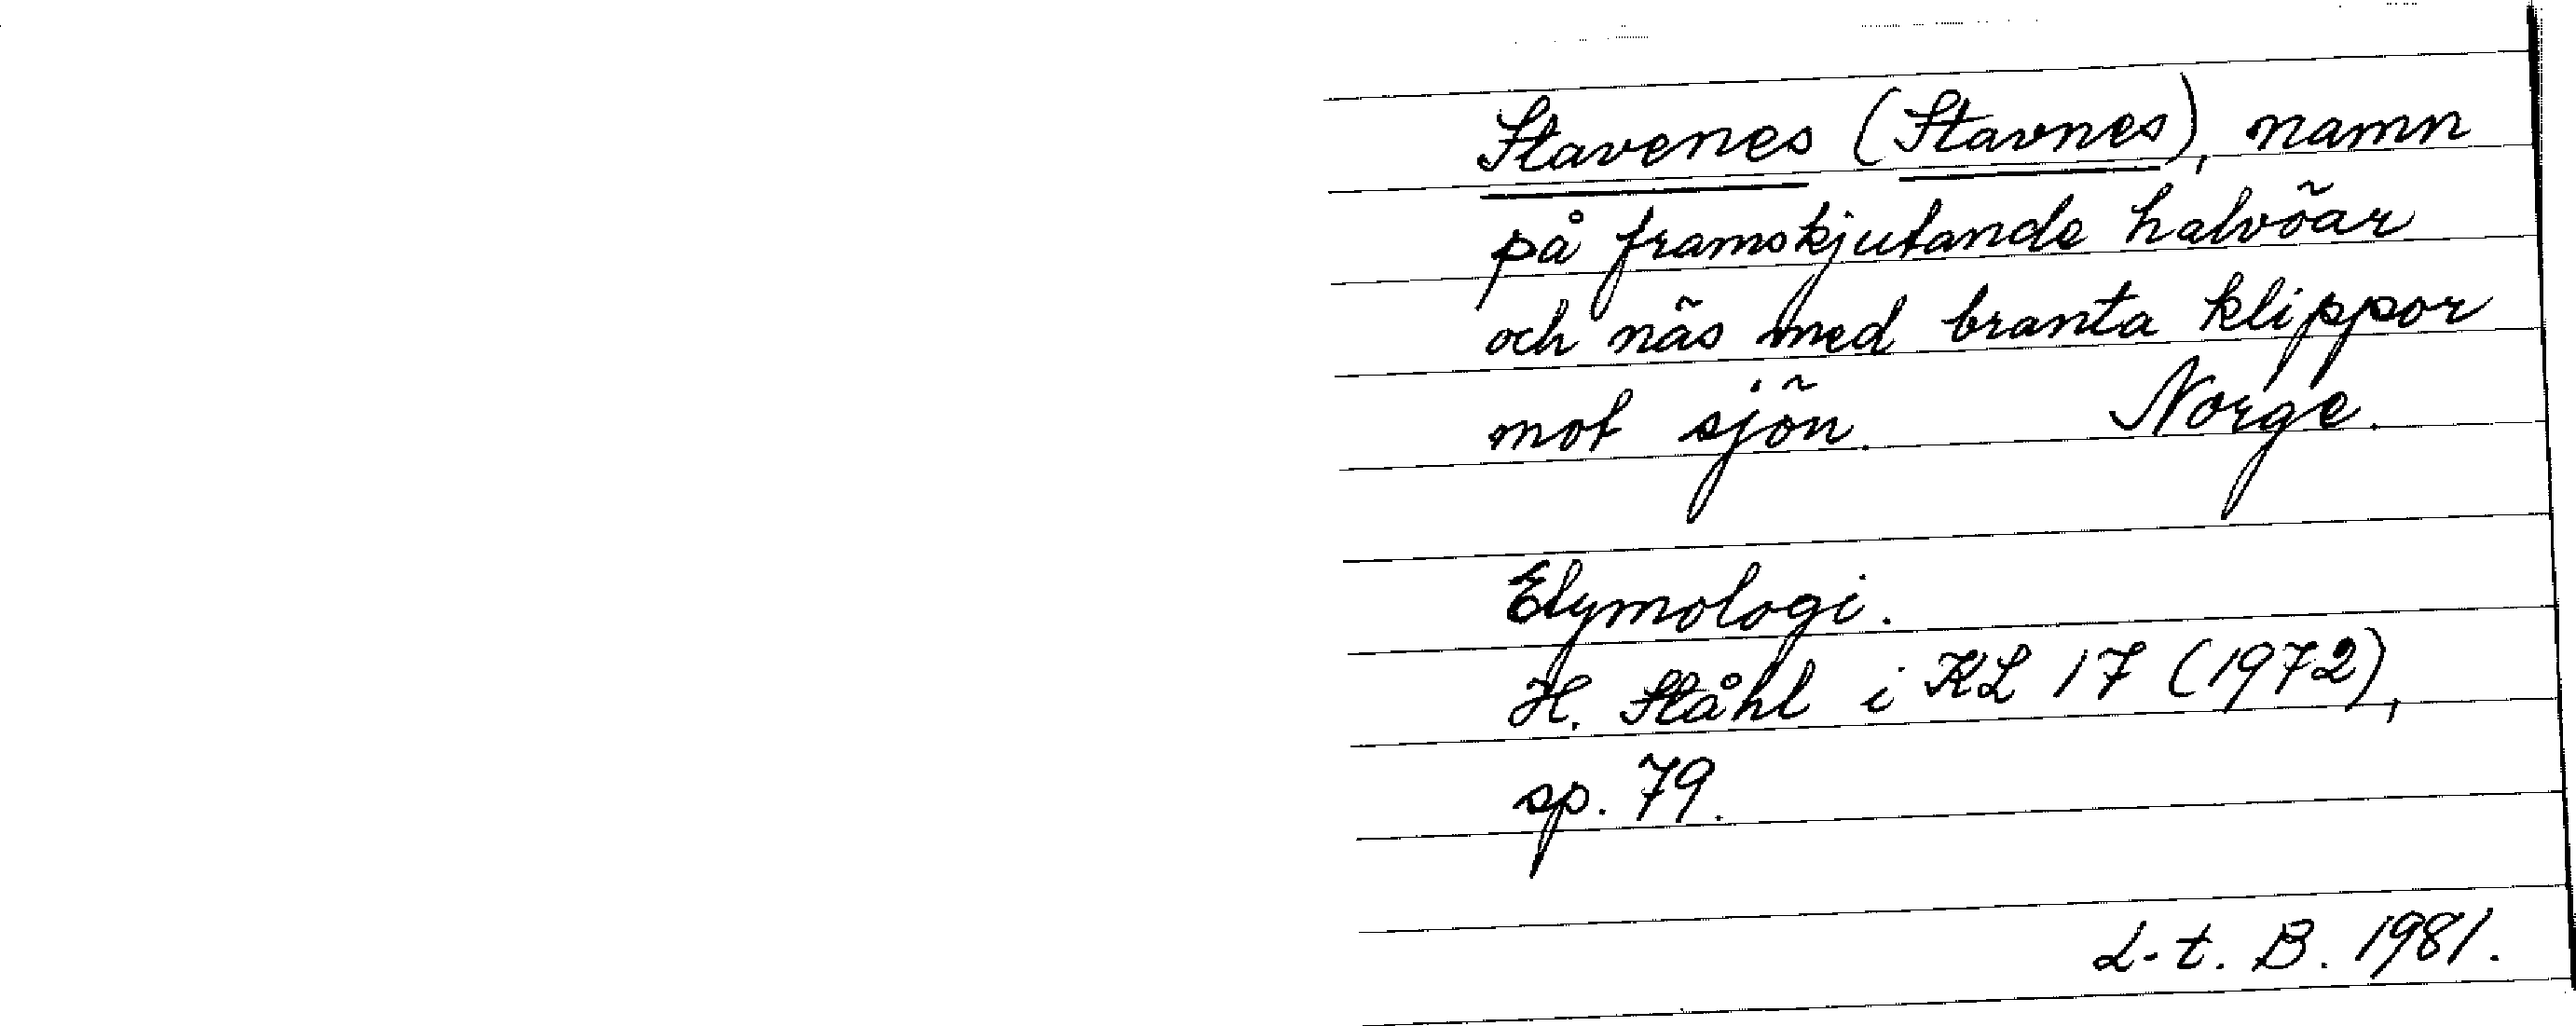 Stavenes (Stavnes), namn
på framskjutande halvöar
och näs med branta klippor
mot sjön. Norge.
Etymologi.
H. Ståhl i KL 17 (1972),
sp. 79.
L-t. B. 1981.